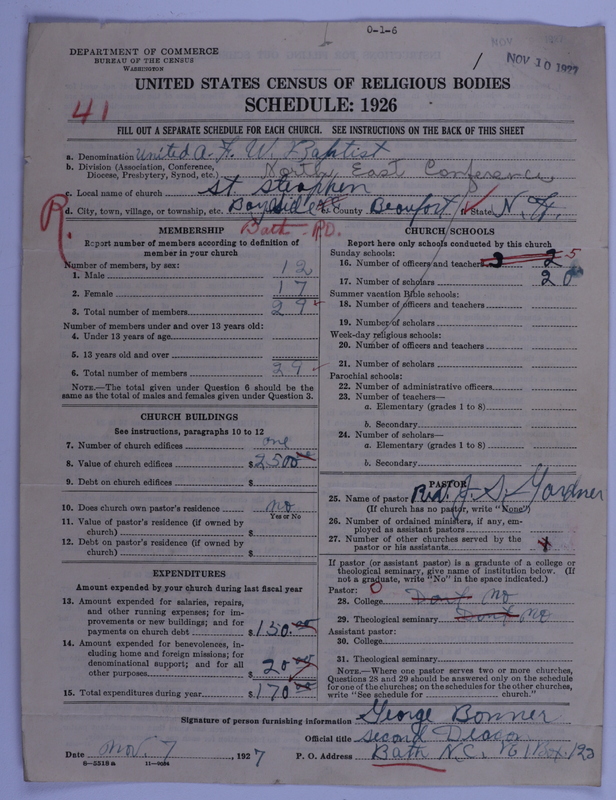 0-1-6
DEPARTMENT OF COMMERCE
BUREAU OF THE CENSUS
WASHINGTON
NOV 10 1927
UNITED STATES CENSUS OF RELIGIOUS BODIES
SCHEDULE: 1926
41
FILL OUT A SEPARATE SCHEDULE FOR EACH CHURCH. SEE INSTRUCTIONS ON THE BACK OF THIS SHEET
a. Denomination United A. F. W. Baptist
b. Division (Association, Conference, Diocese, Presbytery, Synod, etc.) North East Conference
c. Local name of church St Stephen
d. City, town, village, or township, etc. Bayside County Beaufort State N.
R.
Bath - RD.
MEMBERSHIP
Report number of members according to definition of
member in your church
Number of members, by sex:
1. Male 12
2. Female 17
3. Total number of members 29
Number of members under and over 13 years old:
4. Under 13 years of age
5. 13 years old and over
6. Total number of members 29
NOTE.—The total given under Question 6 should be the
same as the total of males and females given under Question 3.
CHURCH BUILDINGS
See instructions, paragraphs 10 to 12
7. Number of church edifices one
8. Value of church edifices $2500
9. Debt on church edifices $
10. Does church own pastor's residence no
Yes or No
11. Value of pastor's residence (if owned by
church) $
12. Debt on pastor's residence (if owned by
church) $
EXPENDITURES
Amount expended by your church during last fiscal year
13. Amount expended for salaries, repairs,
and other running expenses; for im-
provements or new buildings; and for
payments on church debt $150.
14. Amount expended for benevolences, in-
cluding home and foreign missions; for
denominational support; and for all
other purposes $20
15. Total expenditures during year $170
CHURCH SCHOOLS
Report here only schools conducted by this church
Sunday schools:
16. Number of officers and teachers 3 2 5
17. Number of scholars 20
Summer vacation Bible schools:
18. Number of officers and teachers
19. Number of scholars
Week-day religious schools:
20. Number of officers and teachers
21. Number of scholars
Parochial schools:
22. Number of administrative officers
23. Number of teachers—
a. Elementary (grades 1 to 8)
b. Secondary
24. Number of scholars—
a. Elementary (grades 1 to 8)
b. Secondary
PASTOR
25. Name of pastor Rev. J. S. Gardner
(If church has no pastor, write "None")
26. Number of ordained ministers, if any, em-
ployed as assistant pastors
27. Number of other churches served by the
pastor or his assistants
If pastor (or assistant pastor) is a graduate of a college or
theological seminary, give name of institution below. (If
not a graduate, write "No" in the space indicated.)
Pastor:
28. College Dont No
29. Theological seminary Dont No
Assistant pastor:
30. College
31. Theological seminary
NOTE.—Where one pastor serves two or more churches,
Questions 28 and 29 should be answered only on the schedule
for one of the churches; on the schedules for the other churches,
write "See schedule for church."
Signature of person furnishing information George Bonner
Official title Second Deacon
Date Nov. 7, 1927 P. O. Address Bath N.C. R1 Box 123
8-5518a 11-9064